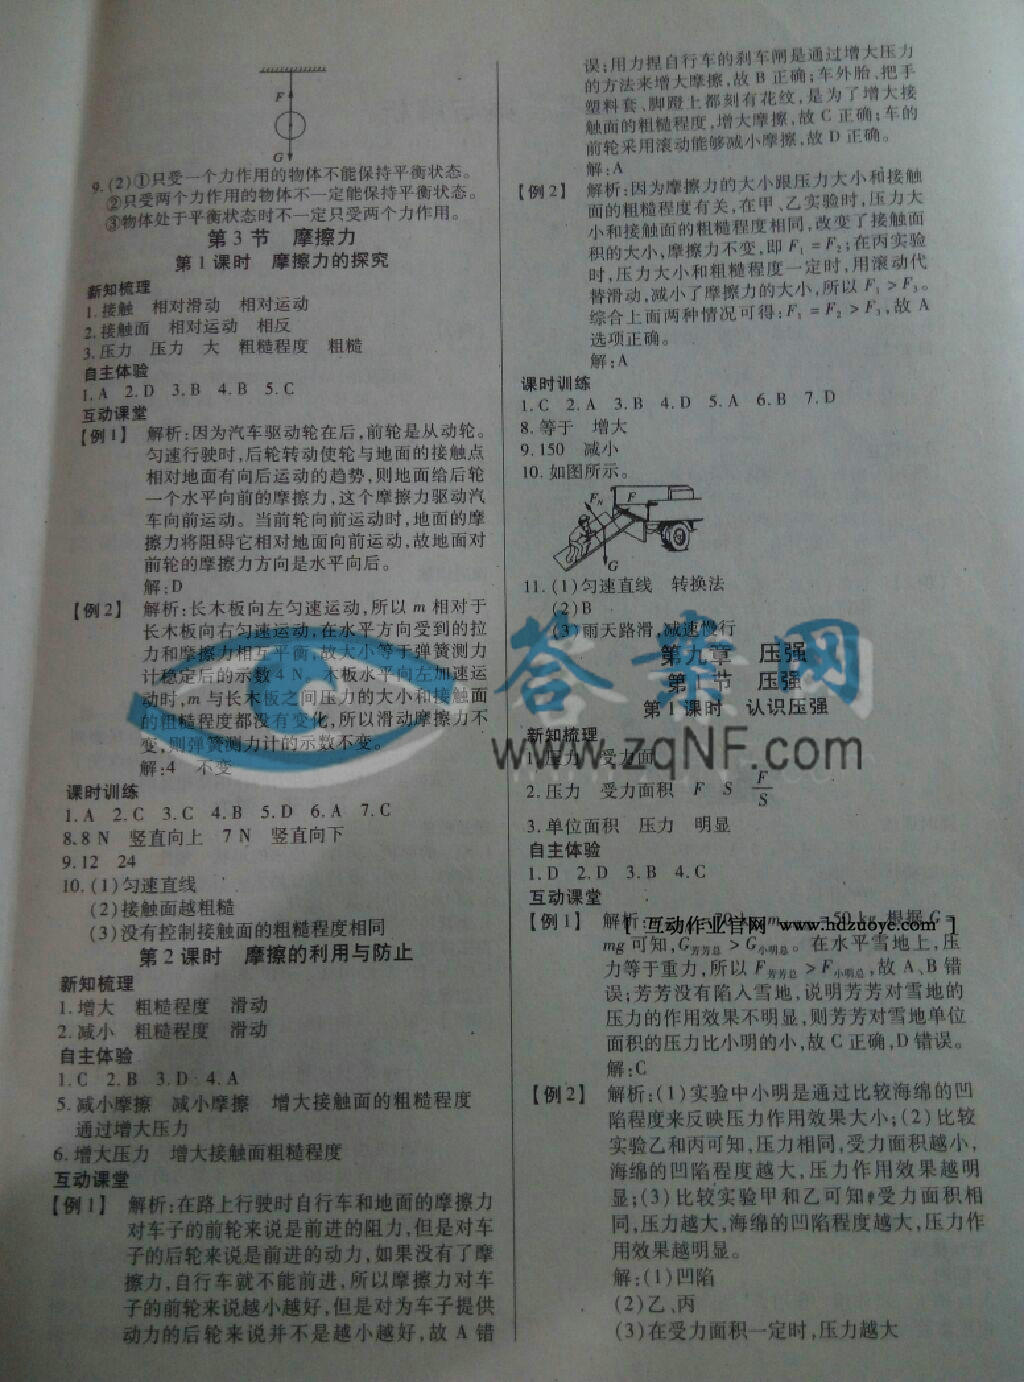 F
G
9. (2)①只受一个力作用的物体不能保持平衡状态。
②只受两个力作用的物体不一定能保持平衡状态。
③物体处于平衡状态时不一定只受两个力作用。
第3节 摩擦力
第1课时 摩擦力的探究
新知梳理
1. 接触 相对滑动 相对运动
2. 接触面 相对运动 相反
3. 压力 压力 大 粗糙程度 粗糙
自主体验
1. A 2. D 3. B 4. B 5. C
互动课堂
【例1】 解析:因为汽车驱动轮在后,前轮是从动轮。
匀速行驶时,后轮转动使轮与地面的接触点
相对地面有向后运动的趋势,则地面给后轮
一个水平向前的摩擦力,这个摩擦力驱动汽
车向前运动。当前轮向前运动时,地面的摩
擦力将阻碍它相对地面向前运动,故地面对
前轮的摩擦力方向是水平向后。
解:D
【例2】 解析:长木板向左匀速运动,所以 m 相对于
长木板向右匀速运动,在水平方向受到的拉
力和摩擦力相互平衡,故大小等于弹簧测力
计稳定后的示数4 N。木板水平向左加速运
动时,m 与长木板之间压力的大小和接触面
的粗糙程度都没有变化,所以滑动摩擦力不
变,则弹簧测力计的示数不变。
解:4 不变
课时训练
1. A 2. C 3. C 4. B 5. D 6. A 7. C
8. 8 N 竖直向上 7 N 竖直向下
9. 12 24
10. (1)匀速直线
(2)接触面越粗糙
(3)没有控制接触面的粗糙程度相同
第2课时 摩擦的利用与防止
新知梳理
1. 增大 粗糙程度 滑动
2. 减小 粗糙程度 滑动
自主体验
1. C 2. B 3. D 4. A
5. 减小摩擦 减小摩擦 增大接触面的粗糙程度
通过增大压力
6. 增大压力 增大接触面粗糙程度
互动课堂
【例1】 解析:在路上行驶时自行车和地面的摩擦力
对车子的前轮来说是前进的阻力,但是对车
子的后轮来说是前进的动力,如果没有了摩
擦力,自行车就不能前进,所以摩擦力对车
子的前轮来说越小越好,但是对为车子提供
动力的后轮来说并不是越小越好,故 A 错
误;用力捏自行车的刹车闸是通过增大压力
的方法来增大摩擦,故 B 正确;车外胎、把手
塑料套、脚蹬上都刻有花纹,是为了增大接
触面的粗糙程度,增大摩擦,故 C 正确;车的
前轮采用滚动能够减小摩擦,故 D 正确。
解:A
【例2】 解析:因为摩擦力的大小跟压力大小和接触
面的粗糙程度有关,在甲、乙实验时,压力大
小和接触面的粗糙程度相同,改变了接触面
积的大小,摩擦力不变,即 F₁ = F₂;在丙实验
时,压力大小和粗糙程度一定时,用滚动代
替滑动,减小了摩擦力的大小,所以 F₁ > F₃。
综合上面两种情况可得:F₁ = F₂ > F₃,故 A
选项正确。
解:A
课时训练
1. C 2. A 3. B 4. D 5. A 6. B 7. D
8. 等于 增大
9. 150 减小
10. 如图所示。
F
G
11. (1)匀速直线 转换法
(2)B
(3)雨天路滑,减速慢行
第九章 压强
第1节 压强
第1课时 认识压强
答案网
www.zqNF.com
新知梳理
1. 压力 受力面
2. 压力 受力面积 F S F/S
3. 单位面积 压力 明显
自主体验
1. D 2. D 3. B 4. C
互动课堂
【例1】 解析: 70 = 50 kg,根据 G =
[ 互动作业官网 www.hdzuoye.com ]
mg 可知,G芳芳总 > G小明总。在水平雪地上,压
力等于重力,所以 F芳芳总 > F小明总,故 A、B 错
误;芳芳没有陷入雪地,说明芳芳对雪地的
压力的作用效果不明显,则芳芳对雪地单位
面积的压力比小明的小,故 C 正确,D 错误。
解:C
【例2】 解析:(1)实验中小明是通过比较海绵的凹
陷程度来反映压力作用效果大小;(2)比较
实验乙和丙可知,压力相同,受力面积越小,
海绵的凹陷程度越大,压力作用效果越明
显;(3)比较实验甲和乙可知,受力面积相
同,压力越大,海绵的凹陷程度越大,压力作
用效果越明显。
解:(1)凹陷
(2)乙、丙
(3)在受力面积一定时,压力越大